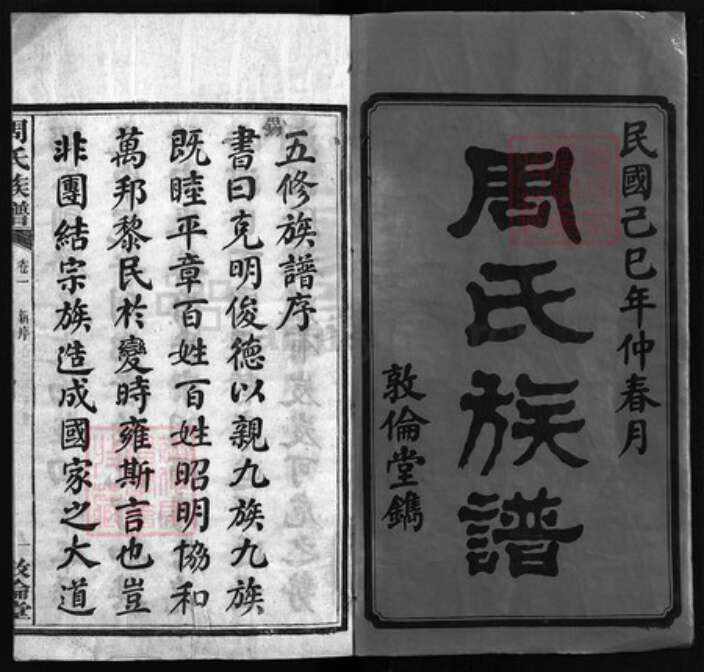 民國己巳年仲春月
周氏族譜
敦倫堂鐫
五修族譜序
書曰克明俊德以親九族九族
既睦平章百姓百姓昭明協和
萬邦黎民於變時雍斯言也豈
非團結宗族造成國家之大道
周氏族譜 卷一 新序 一 敦倫堂